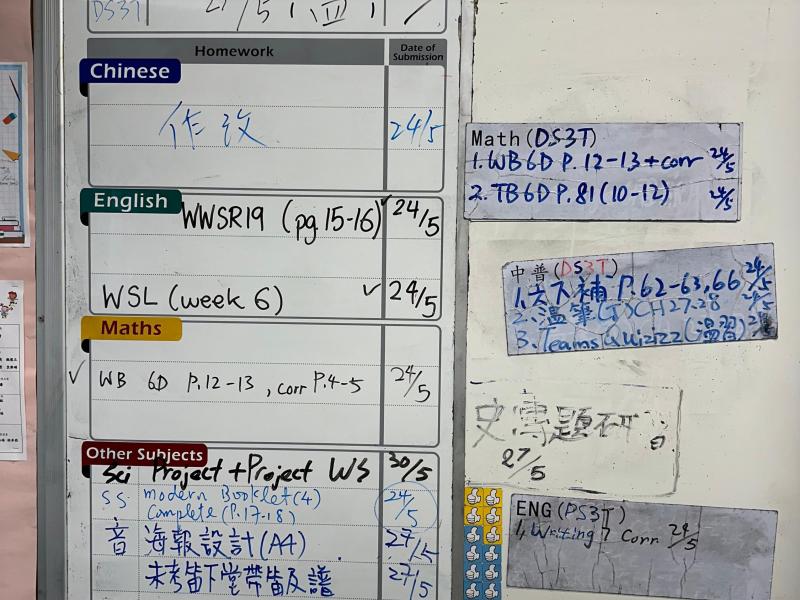 DS3T
Homework
Date of Submission
Chinese
作改 24/5
English
WWSR19 (pg 15-16) ✓ 24/5
WSL (week 6) ✓ 24/5
Maths
✓ WB 6D P.12-13, corr P.4-5 24/5
Other Subjects
Sci Project + Project WS 30/5
SS modern Booklet(4) 24/5
Complete (P.17-18)
音 海報設計(A4) 27/5
未考笛下堂帶笛及譜 27/5
Math (DS3T)
1. WB 6D P. 12-13 + corr 24/5
2. TB 6D P. 81 (10-12) 24/5
中普(DS3T)
1. 六下補 P.62-63, 66 24/5
2. 溫筆(T5)CH27,28 24/5
3. Teams Quizizz(溫習) 24
史專題研
27/5
ENG (PS3T)
1, Writing 7 Corr 24/5